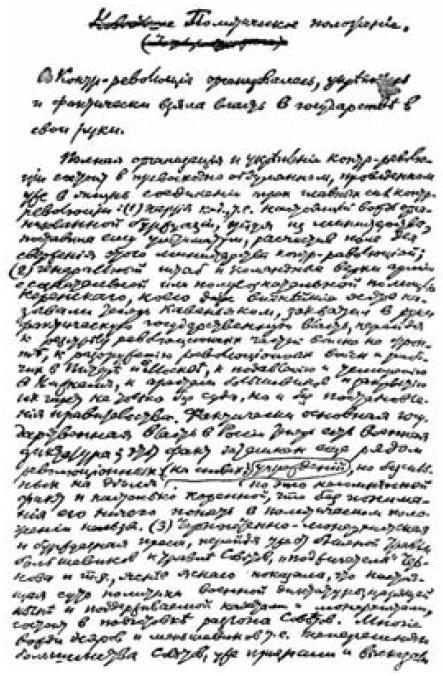 Политическое положение.
Контр-революция организовалась, укрепилась
и фактически взяла власть в государстве в
свои руки.
Полная организация и укрепление контр-револю-
ции состоит в превосходно обдуманном, проведенном
уже в жизнь соединении трех главных сил контр-
революции: (1) партия к.-д., т.е. настоящий вождь орга-
низованной буржуазии, уйдя из министерства,
поставила ему ультиматум, расчистив поле для
свержения этого министерства контр-революцией;
(2) генеральный штаб и командные верхи армии
с сознательной или полусознательной помощью
Керенского, коего даже виднейшие эсеры на-
зывали теперь Кавеньяком, захватил в руки
фактическую государственную власть, перейдя
к расстрелу революционных частей войск на фрон-
те, к разоружению революционных войск и рабо-
чих в Питере и Москве, к подавлению и усмирению
в Нижнем, к арестам большевиков и закрытию
их газет не только без суда, но и без постановле-
ния правительства. Фактически основная госу-
дарственная власть в России теперь есть военная
диктатура; этот факт затемнен еще рядом
революционных (на словах) учреждений, но бессиль-
ных на деле. Но это несомненный
факт и настолько коренной, что без понима-
ния его ничего понять в политическом поло-
жении нельзя. (3) Черносотенно-монархическая
и буржуазная пресса, перейдя уже от бешеной травли
большевиков к травле Советов, "поджигателя" Чер-
нова и т.д., яснее ясного показала, что настоя-
щая суть политики военной диктатуры, царящей
ныне и поддерживаемой кадетами и монархистами,
состоит в подготовке разгона Советов. Многие
вожди эсеров и меньшевиков, т.е. теперешнего
большинства Советов, уже признали и высказали